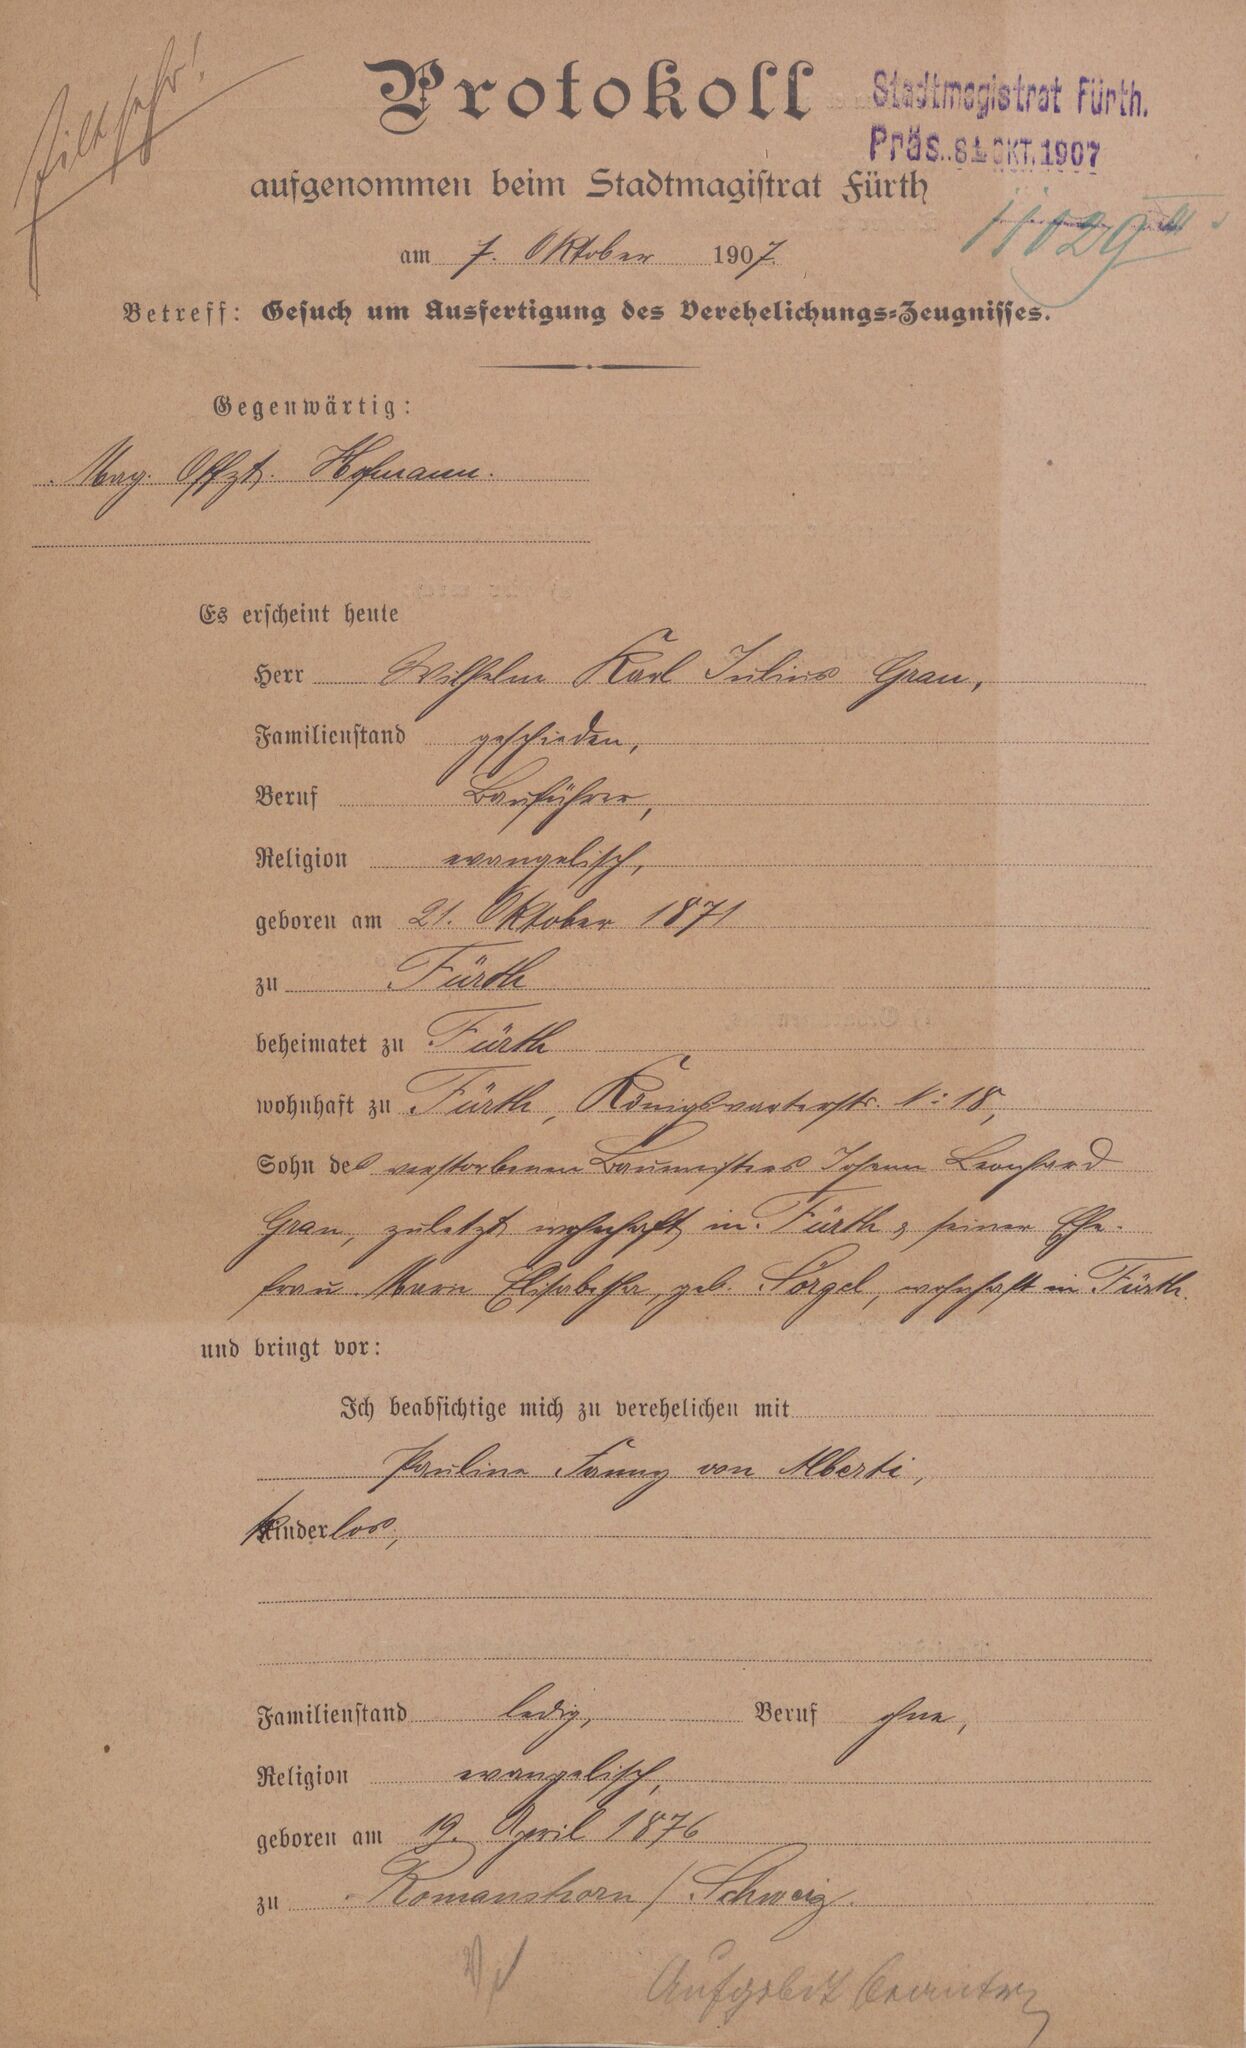 Eilt sehr!
Protokoll
Stadtmagistrat Fürth.
Präs. 8. OKT. 1907
aufgenommen beim Stadtmagistrat Fürth
am 7. Oktober 1907.
Betreff: Gesuch um Ausfertigung des Verehelichungs-Zeugnisses.
Gegenwärtig:
Mag. Offzt. Hofmann.
Es erscheint heute
Herr Wilhelm Karl Julius Grau,
Familienstand geschieden,
Beruf Bauführer,
Religion evangelisch,
geboren am 21. Oktober 1871
zu Fürth
beheimatet zu Fürth
wohnhaft zu Fürth, Königswarterstr. N: 18,
Sohn des verstorbenen Baumeisters Johann Leonhard
Grau, zuletzt wohnhaft in Fürth & seiner Ehe-
frau Marie Elisabetha, geb. Sörgel, wohnhaft in Fürth.
und bringt vor:
Ich beabsichtige mich zu verehelichen mit
Pauline Fanny von Alberti,
kinderlos,
Familienstand ledig, Beruf ohne,
Religion evangelisch,
geboren am 19. April 1876
zu Romanshorn / Schweiz.
Aufgebot